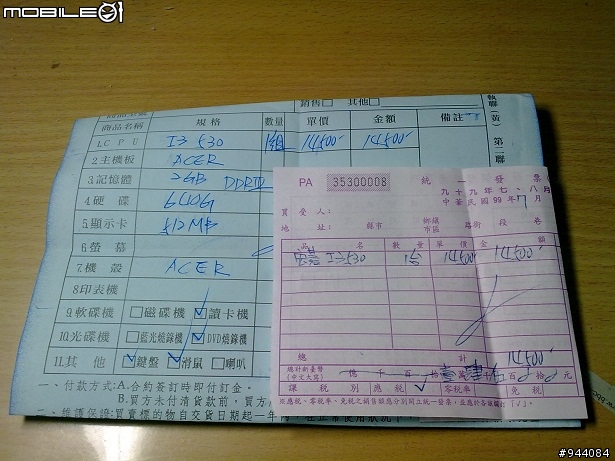 MOBILE01
銷售□ 其他□
執聯(黃) 第二聯
商品名稱 規格 數量 單價 金額 備註
1.C P U I3 530 1組 14500- 14500-
2.主機板 ACER
3.記憶體 2GB DDRIII
4.硬碟 640G
5.顯示卡 512MB
6.螢幕
7.機殼 ACER
8.印表機
9.軟碟機 □磁碟機 ☑讀卡機
10.光碟機 □藍光燒錄機 ☑DVD燒錄機
11.其他 ☑鍵盤 ☑滑鼠 □喇叭
一、付款方式:A.合約簽訂時即付訂金。
B.買方未付清貨款前,買方
二、維護保證:買賣標的物自交貨日期起一年
PA 35300008 統一發票
九十九年七、八月
中華民國99年7月
買受人:
地址: 縣市 鄉鎮市區 路街 段 巷
品名 數量 單價 金額
I3 530 1台 14500- 14500-
總計 14500-
總計新臺幣(中文大寫) 億 千 百 十 壹萬 肆仟 伍百 元
課稅別 應稅 ✓ 零稅率 免稅
※應稅、零稅率、免稅之銷售額應分別開立統一發票,並應於各該欄打「✓」。
#944084